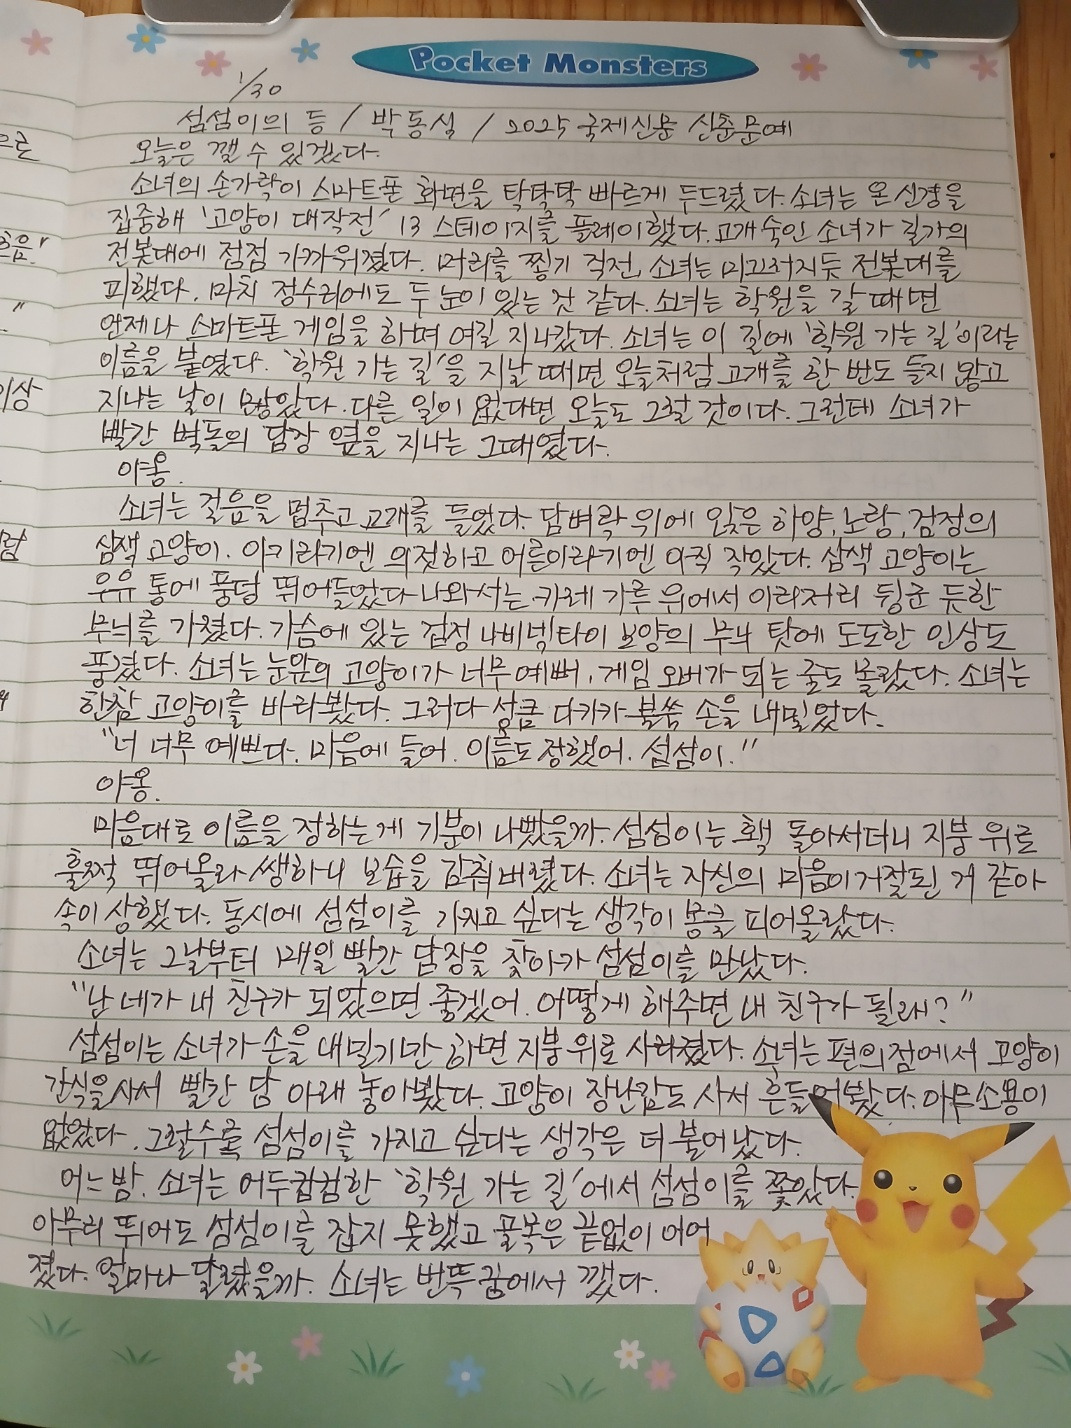 Pocket Monsters
1/30
섬섬이의 등 / 박동실 / 2025 국제신문 신춘문예
오늘은 깰 수 있겠다.
소녀의 손가락이 스마트폰 화면을 탁탁탁 빠르게 두드렸다. 소녀는 온 신경을
집중해 '고양이 대작전' 13 스테이지를 플레이했다. 고개 숙인 소녀가 길가의
전봇대에 점점 가까워졌다. 머리를 찧기 직전, 소녀는 미끄러지듯 전봇대를
피했다. 마치 정수리에도 두 눈이 있는 것 같다. 소녀는 학원을 갈 때면
언제나 스마트폰 게임을 하며 여길 지나갔다. 소녀는 이 길에 '학원 가는 길'이라는
이름을 붙였다. '학원 가는 길'을 지날 때면 오늘처럼 고개를 한 번도 들지 않고
지나는 날이 많았다. 다른 일이 없다면 오늘도 그럴 것이다. 그런데 소녀가
빨간 벽돌의 담장 옆을 지나는 그때였다.
야옹.
소녀는 걸음을 멈추고 고개를 들었다. 담벼락 위에 앉은 하양, 노랑, 검정의
삼색 고양이. 아기라기엔 의젓하고 어른이라기엔 아직 작았다. 삼색 고양이는
우유 통에 풍덩 뛰어들었다 나와서는 카레 가루 위에서 이리저리 뒹군 듯한
무늬를 가졌다. 가슴에 있는 검정 나비넥타이 모양의 무늬 탓에 도도한 인상도
풍겼다. 소녀는 눈앞의 고양이가 너무 예뻐, 게임 오버가 되는 줄도 몰랐다. 소녀는
한참 고양이를 바라봤다. 그러다 성큼 다가가 불쑥 손을 내밀었다.
"너 너무 예쁘다. 마음에 들어. 이름도 정했어. 섬섬이."
야옹.
마음대로 이름을 정하는 게 기분이 나빴을까. 섬섬이는 홱 돌아서더니 지붕 위로
훌쩍 뛰어올라 쌩하니 모습을 감춰버렸다. 소녀는 자신의 마음이 거절된 거 같아
속이 상했다. 동시에 섬섬이를 가지고 싶다는 생각이 몽글 피어올랐다.
소녀는 그날부터 매일 빨간 담장을 찾아가 섬섬이를 만났다.
"난 네가 내 친구가 되었으면 좋겠어. 어떻게 해주면 내 친구가 될래?"
섬섬이는 소녀가 손을 내밀기만 하면 지붕 위로 사라졌다. 소녀는 편의점에서 고양이
간식을 사서 빨간 담 아래 놓아봤다. 고양이 장난감도 사서 흔들어봤다. 아무 소용이
없었다. 그럴수록 섬섬이를 가지고 싶다는 생각은 더 불어났다.
어느 밤. 소녀는 어두컴컴한 '학원 가는 길'에서 섬섬이를 쫓았다.
아무리 뛰어도 섬섬이를 잡지 못했고 골목은 끝없이 이어
졌다. 얼마나 달렸을까. 소녀는 번뜩 꿈에서 깼다.